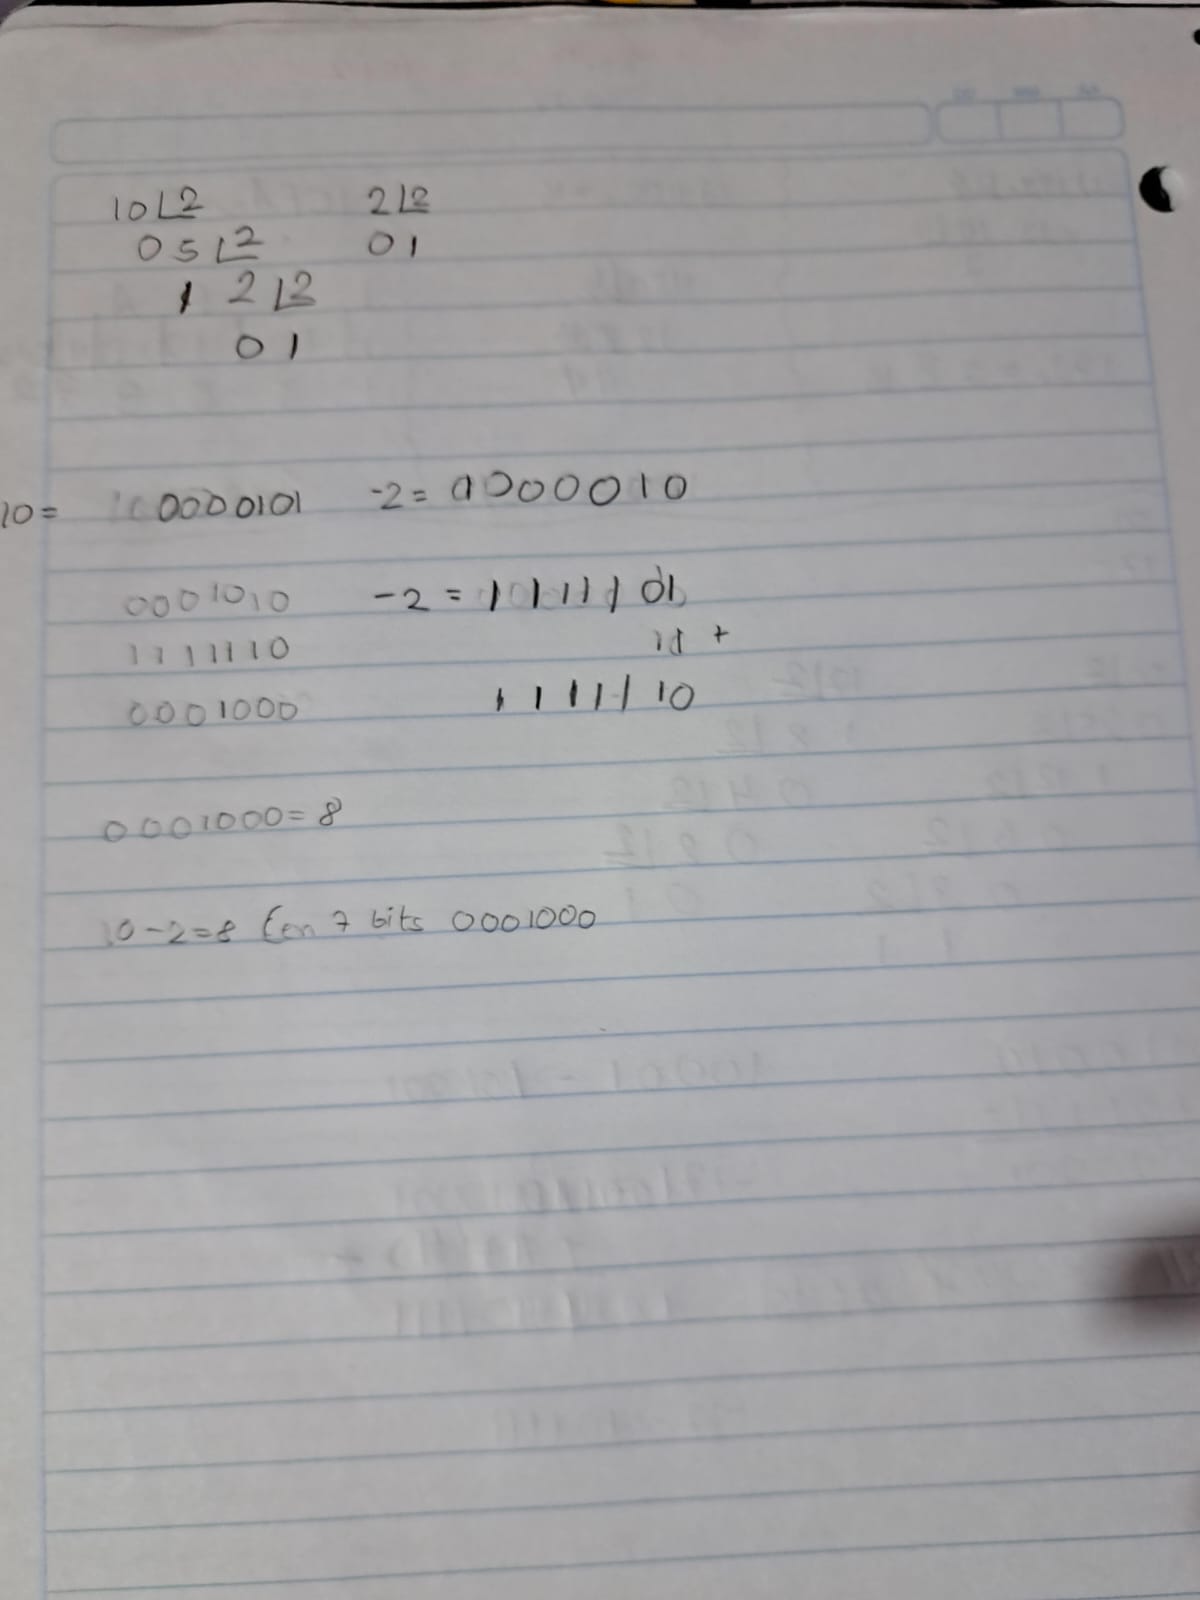 10 2 2 2
0 5 2 0 1
1 2 2
0 1
10= 0000101 -2= 0000010
0001010 -2 = 1111101
1111110 +
0001000 1111110
0001000=8
10-2=8 (en 7 bits 0001000